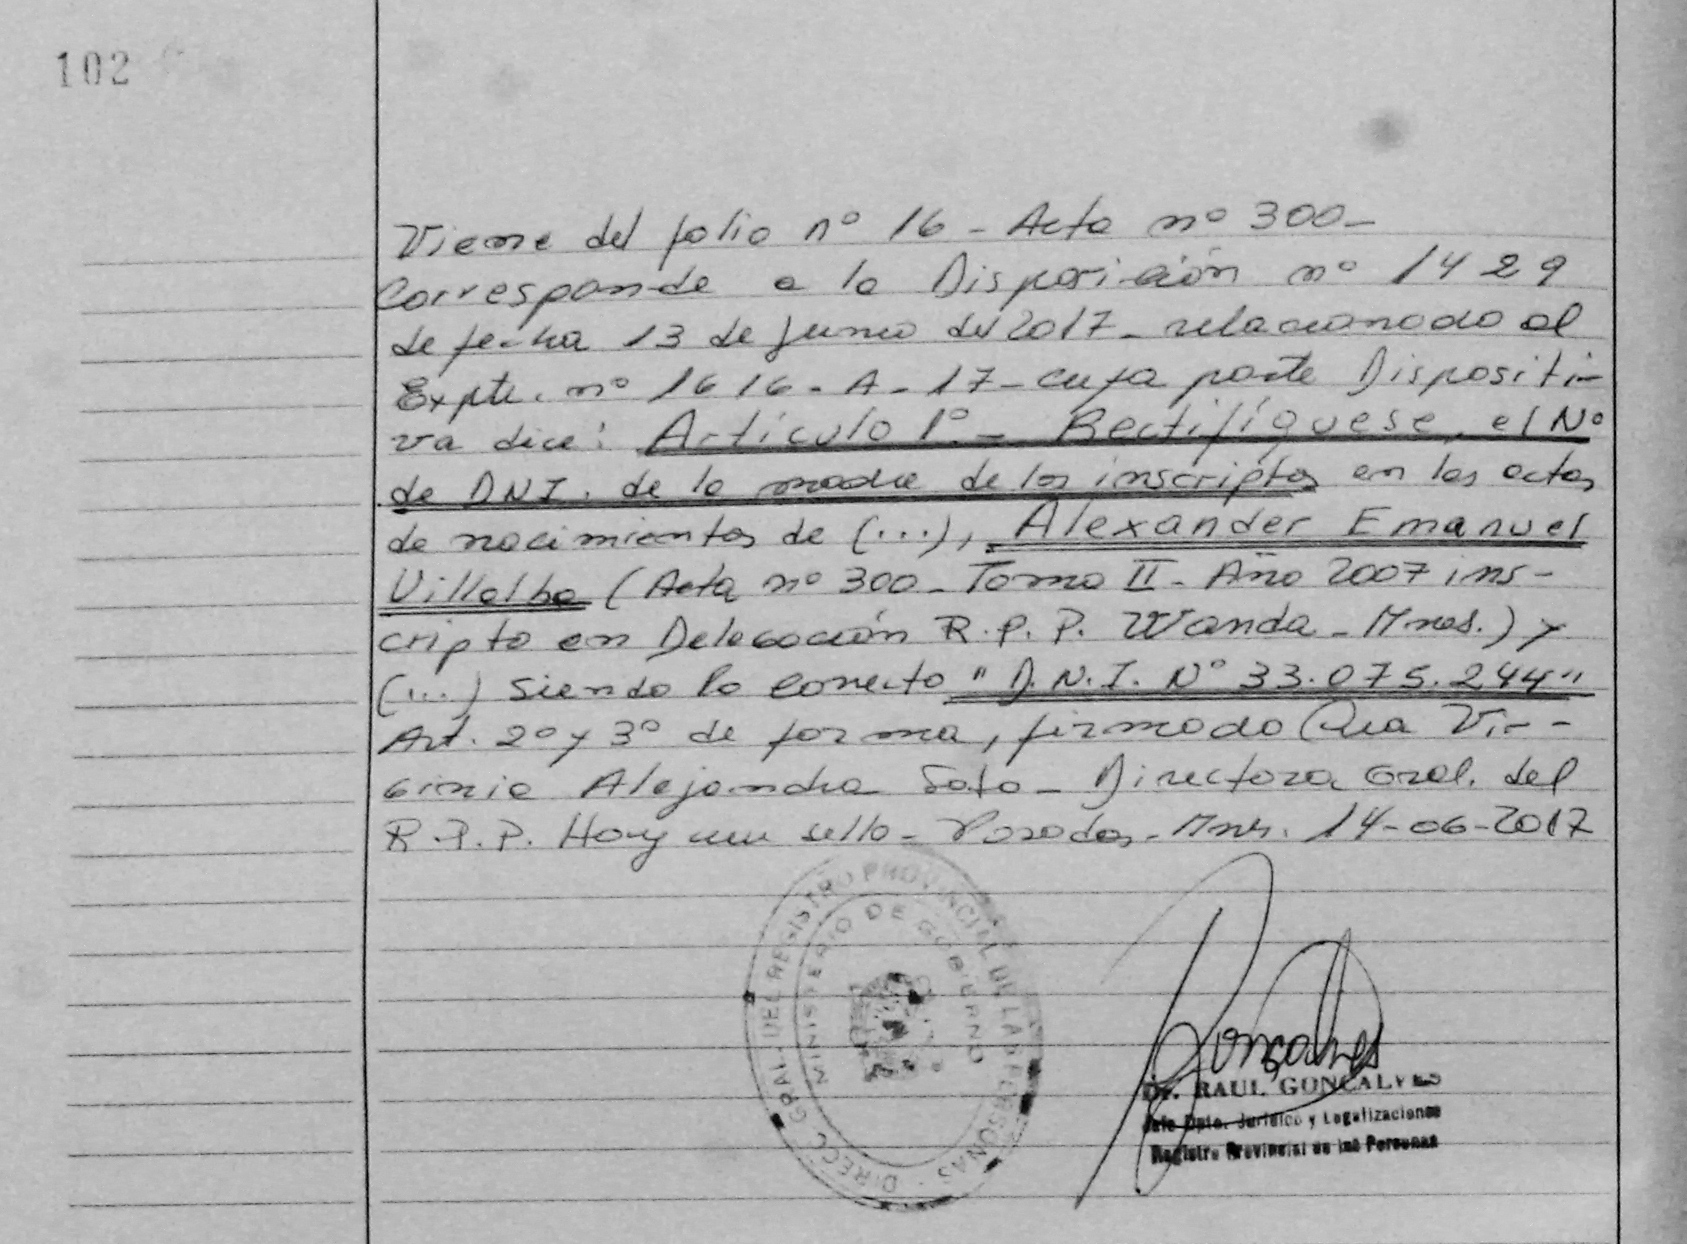 102
Viene del folio nº 16 - Acta nº 300-
Corresponde a la Disposición nº 1429
de fecha 13 de Junio del 2017 - relacionado al
Expte. nº 1616 - A - 17 - cuya parte Dispositi-
va dice: Artículo 1º - Rectifíquese, el Nº
de DNI. de la madre de los inscriptos en las actas
de nacimientos de (...), Alexander Emanuel
Villalba (Acta nº 300 - Tomo II - Año 2007 ins-
cripto en Delegación R.P.P. Wanda - Mnes.) y
(...) Siendo lo correcto "D.N.I. Nº 33.075.244"
Art. 2º y 3º de forma, firmado Vir-
ginia Alejandra Soto - Directora Gral. del
R.P.P. Hay un sello - Posadas - Mnes. 14-06-2017
DIRECC. GRAL. DEL REGISTRO PROVINCIAL DE LAS PERSONAS
MINISTERIO DE GOBIERNO
Goncalves
Dr. RAUL GONCALVES
Jefe Dpto. Jurídico y Legalizaciones
Registro Provincial de las Personas